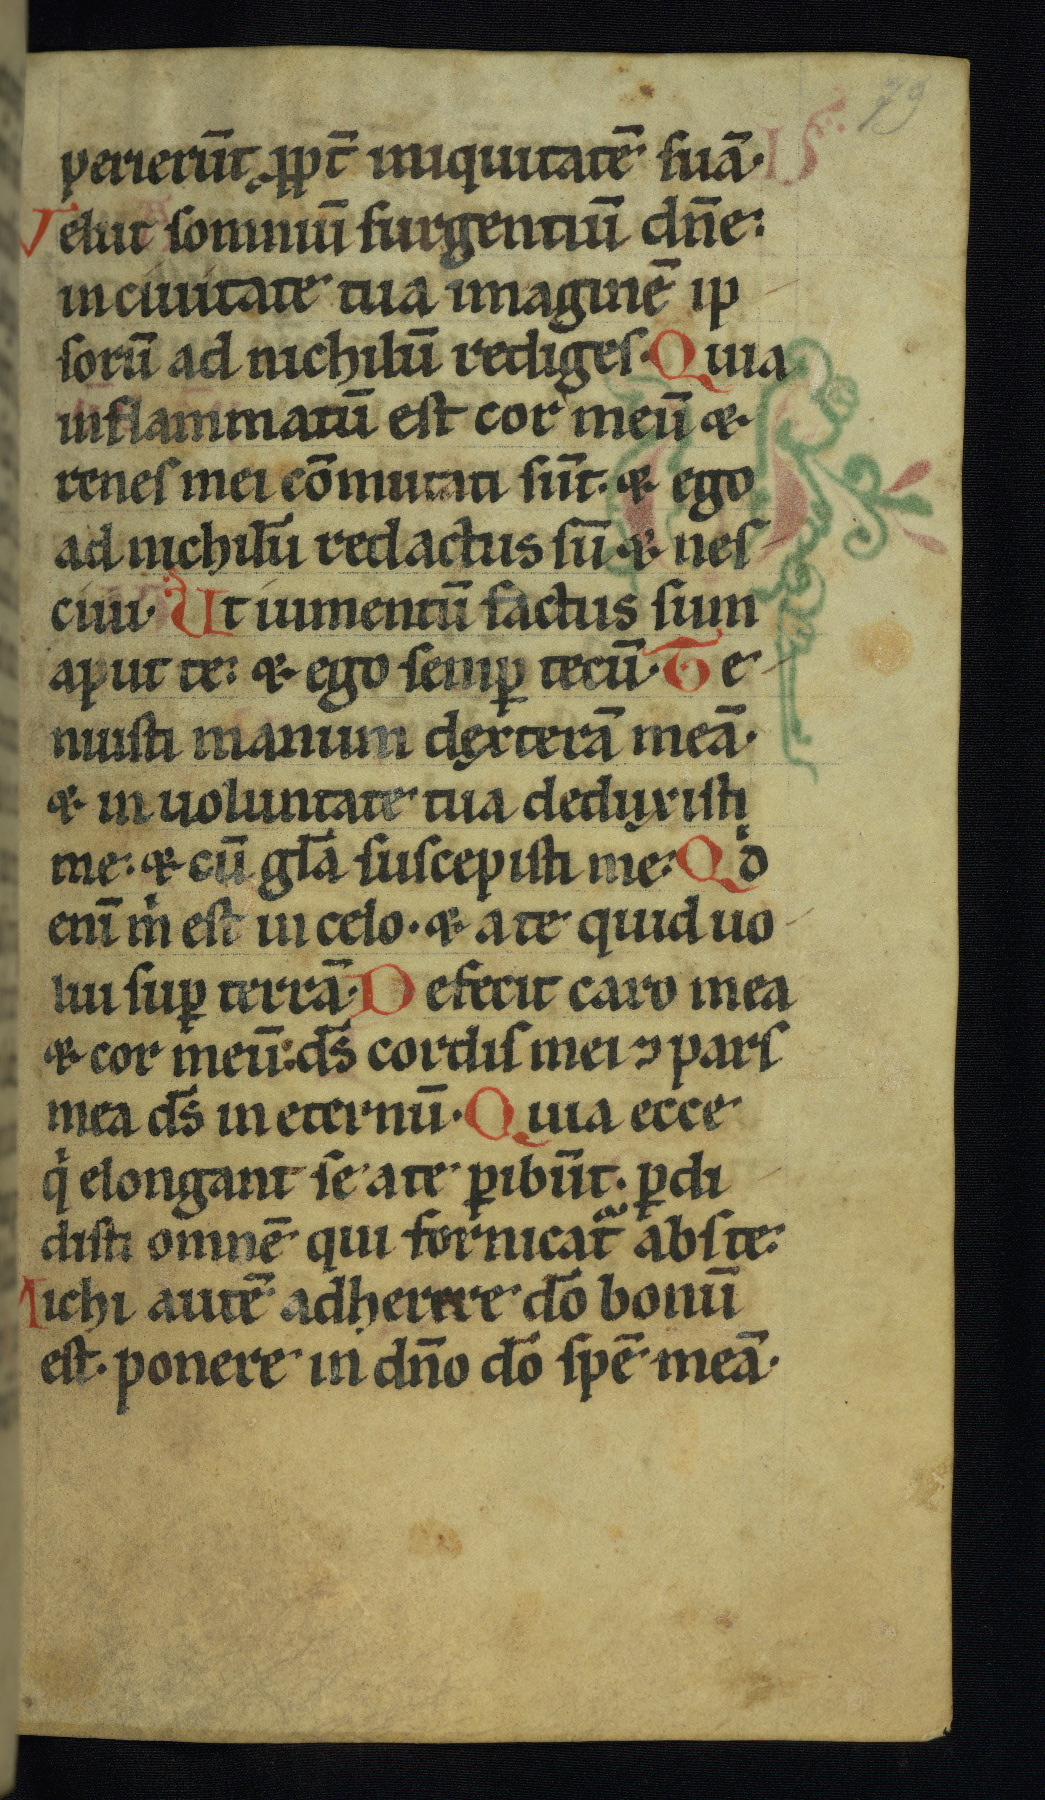 79
perierūt ꝓpt̄ iniquitatē suā.
Velut somniū surgentiū dn̄e:
in ciuitate tua imaginē ip
sorū ad nichilū rediges. Quia
inflammatū est cor meū &
renes mei cōmutati sūt. & ego
ad nichilū redactus sū & nes
ciui. Ut iumentū factus sum
aput te: & ego semꝑ tecū. Te
nuisti manum dexterā meā.
& in uoluntate tua deduxisti
me: & cū gl̄a suscepisti me: Qͥd
enī mͥ est in celo. & a te quid uo
lui suꝑ terrā. Defecit caro mea
& cor meū: ds̄ cordis mei ⁊ pars
mea ds̄ in eternū. Quia ecce
qͥ elongant se a te ꝑibūt. ꝑdi
disti omnē qui fornicat᷑ abs te:
Michi autē adherere dō bonū
est. ponere in dn̄o dō spē meā.